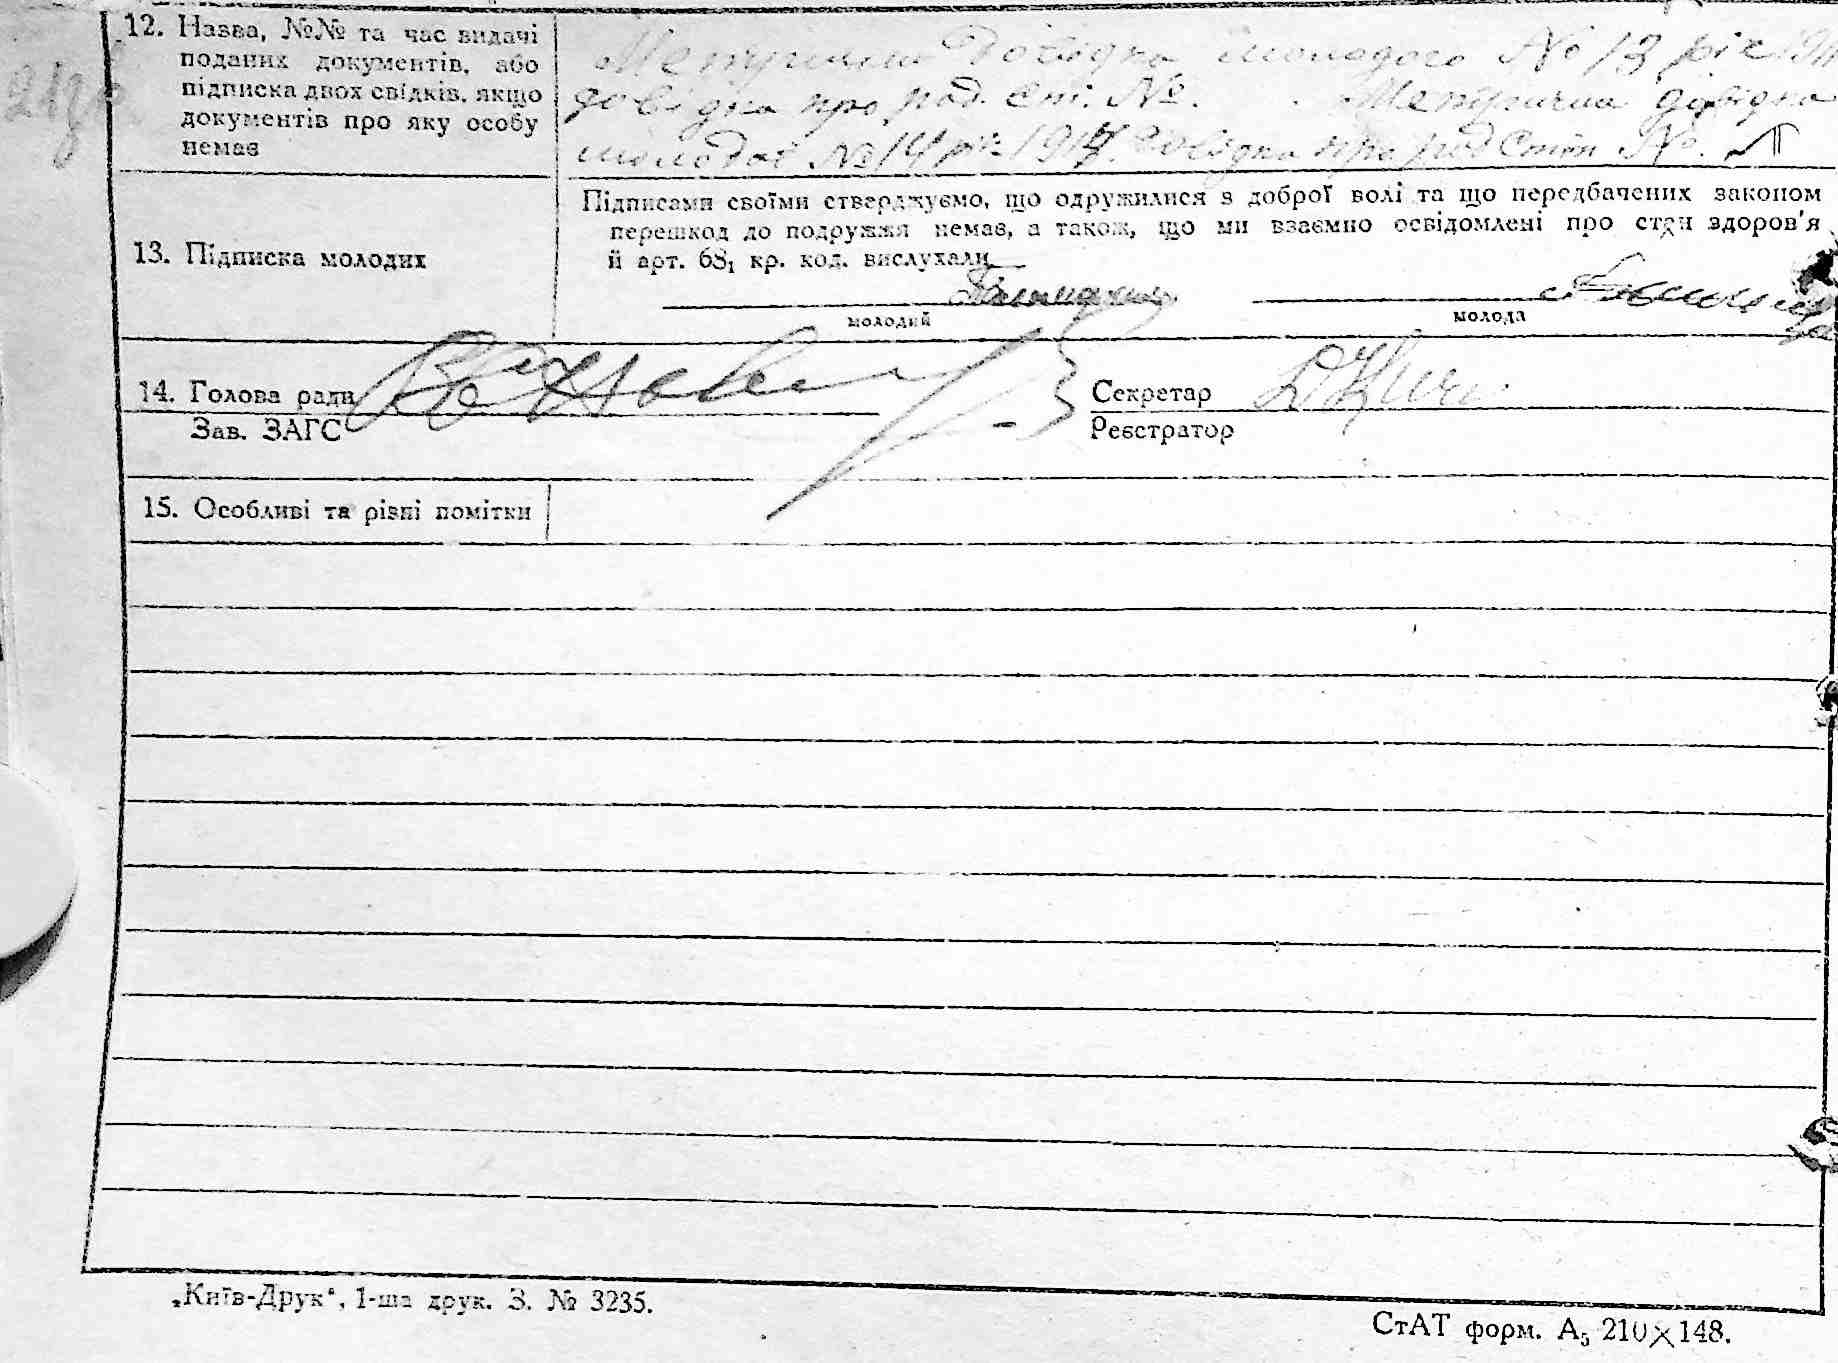 12. Назва, №№ та час видачі
поданих документів, або
підписка двох свідків, якщо
документів про яку особу
немає
Метрична Довідка молодого № 13 рік
довідка про род. Ст. №. Метрична довідка
молодої № 14 рік 1914. Довідка про род Стан №.
13. Підписка молодих
Підписами своїми стверджуємо, що одружилися з доброї волі та що передбачених законом
перешкод до подружжя немає, а також, що ми взаємно освідомлені про стан здоров'я
й арт. 68₁ кр. код. вислухали
молодий
молода
14. Голова ради
Зав. ЗАГС
Секретар
Реєстратор
15. Особливі та різні помітки
„Київ-Друк“, 1-ша друк. З. № 3235.
СтАТ форм. А₅ 210×148.